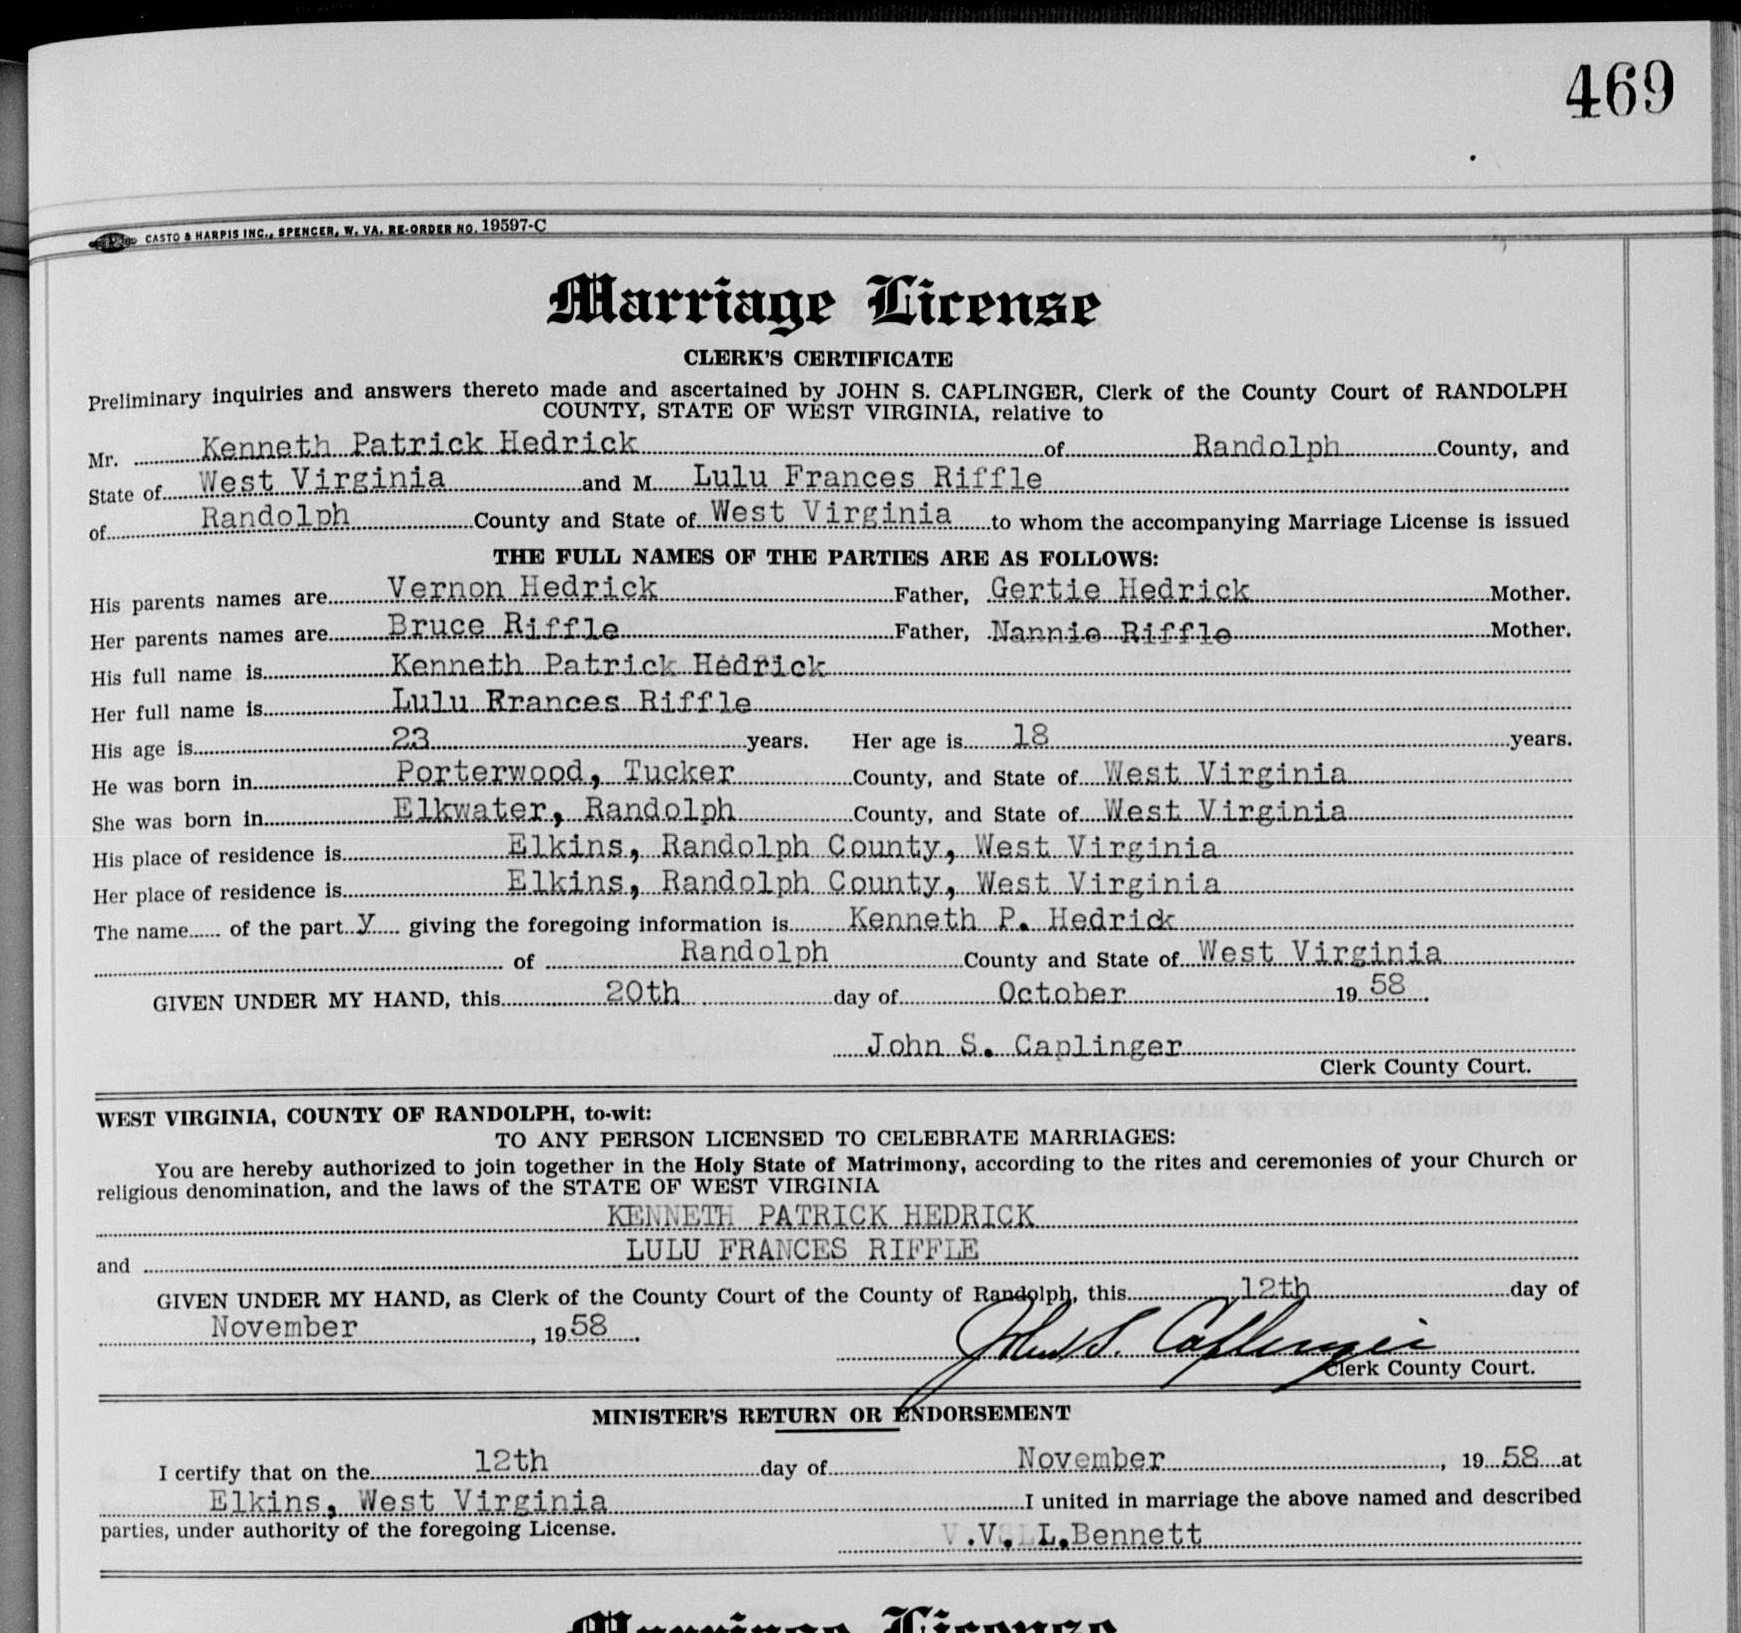 469
CASTO & HARRIS INC., SPENCER, W. VA. RE-ORDER NO. 19597-C
Marriage License
CLERK'S CERTIFICATE
Preliminary inquiries and answers thereto made and ascertained by JOHN S. CAPLINGER, Clerk of the County Court of RANDOLPH
COUNTY, STATE OF WEST VIRGINIA, relative to
Mr. Kenneth Patrick Hedrick of Randolph County, and
State of West Virginia and M Lulu Frances Riffle
of Randolph County and State of West Virginia to whom the accompanying Marriage License is issued
THE FULL NAMES OF THE PARTIES ARE AS FOLLOWS:
His parents names are Vernon Hedrick Father, Gertie Hedrick Mother.
Her parents names are Bruce Riffle Father, Nannie Riffle Mother.
His full name is Kenneth Patrick Hedrick
Her full name is Lulu Frances Riffle
His age is 23 years. Her age is 18 years.
He was born in Porterwood, Tucker County, and State of West Virginia
She was born in Elkwater, Randolph County, and State of West Virginia
His place of residence is Elkins, Randolph County, West Virginia
Her place of residence is Elkins, Randolph County, West Virginia
The name of the part y giving the foregoing information is Kenneth P. Hedrick
of Randolph County and State of West Virginia
GIVEN UNDER MY HAND, this 20th day of October 19 58.
John S. Caplinger
Clerk County Court.
WEST VIRGINIA, COUNTY OF RANDOLPH, to-wit:
TO ANY PERSON LICENSED TO CELEBRATE MARRIAGES:
You are hereby authorized to join together in the Holy State of Matrimony, according to the rites and ceremonies of your Church or
religious denomination, and the laws of the STATE OF WEST VIRGINIA
KENNETH PATRICK HEDRICK
and LULU FRANCES RIFFLE
GIVEN UNDER MY HAND, as Clerk of the County Court of the County of Randolph, this 12th day of
November, 19 58.
John S. Caplinger
Clerk County Court.
MINISTER'S RETURN OR ENDORSEMENT
I certify that on the 12th day of November, 19 58 at
Elkins, West Virginia I united in marriage the above named and described
parties, under authority of the foregoing License.
V. L. Bennett
Marriage License